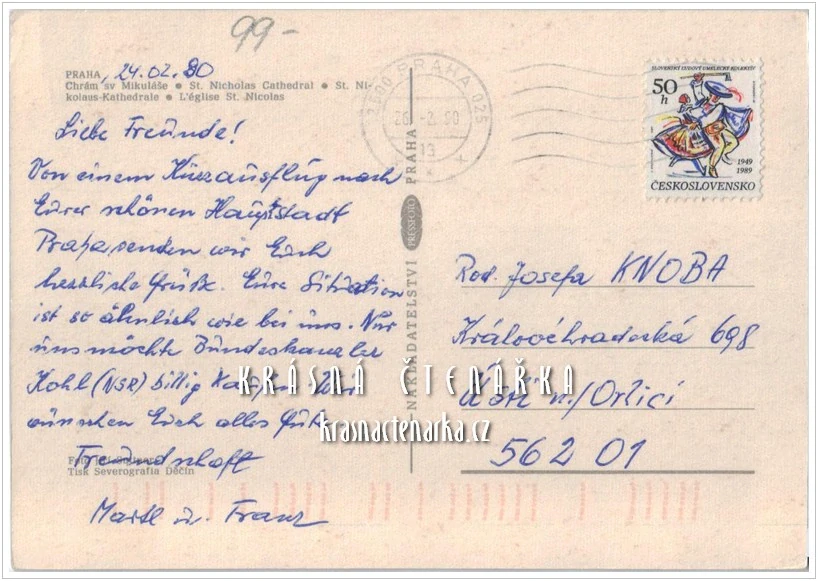 99-
PRAHA, 24.02.90
Chrám sv Mikuláše • St. Nicholas Cathedral • St. Ni-
kolaus-Kathedrale • L'église St. Nicolas
Liebe Freunde!
Von einem Kurzausflug nach
Eurer schönen Hauptstadt
Praha senden wir Euch
herzliche Grüße. Eure Situation
ist so ähnlich wie bei uns. Nur
uns möchte Bundeskanzler
Kohl (NSR) billig kaufen. Wir
wünschen Euch alles Gute
Freundschaft
Tisk Severografia Děčín
Martl u. Franz
NAKLADATELSTVÍ PRESSFOTO PRAHA
PRAHA 025
26.-2.90
13
SLOVENSKÝ ĽUDOVÝ UMELECKÝ KOLEKTÍV
50 h
1949
1989
ČESKOSLOVENSKO
Rod. Josefa KNOBA
Královéhradecká 698
Ústí n./Orlicí
562 01
KRÁSNÁ ČTENÁŘKA
krasnactenarka.cz